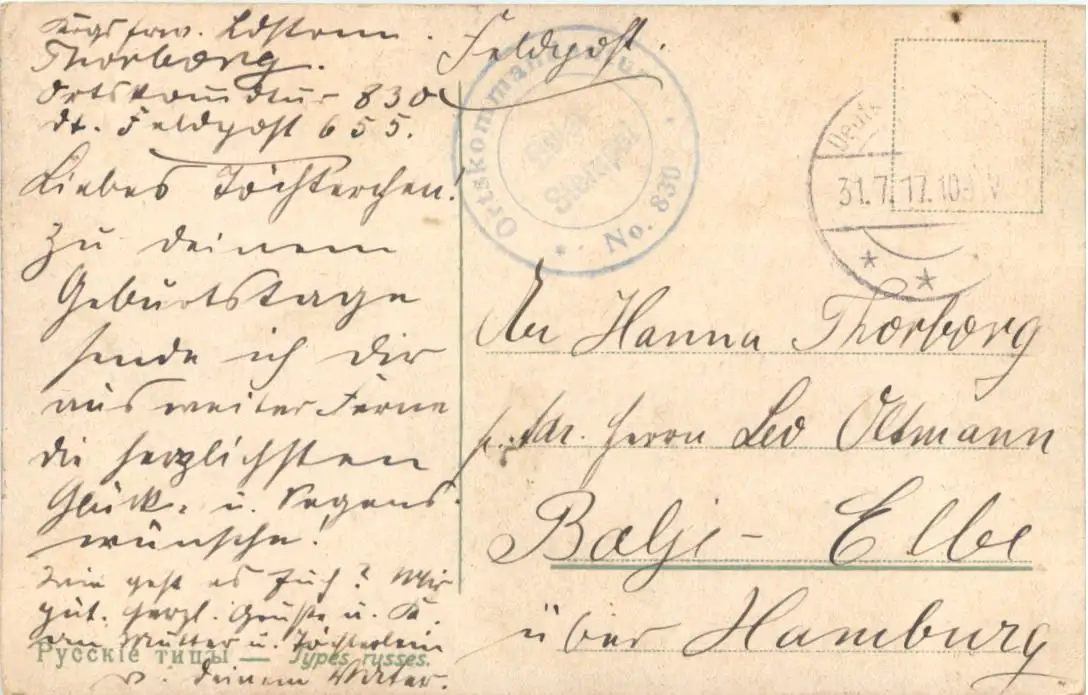 Krgsfrw. Ldstrm.
Thorborg.
Ortskommdtur 830
dt. Feldpost 655.
Feldpost.
Liebes Töchterchen!
Zu deinem
Geburtstage
sende ich dir
aus weiter Ferne
die herzlichsten
Glück- u. Segens-
wünsche!
Wie geht es Euch? Mir
gut. Herzl. Grüße u. K.
an Mutter u. Töchterlein
v. deinem Vater.
Русскіе типы — Types russes.
Ortskommandantur
No. 830
Brief
Stempel
31.7.17.10
An Hanna Thorborg
Adr. Herrn Leo Oltmann
Balje - Elbe
über Hamburg